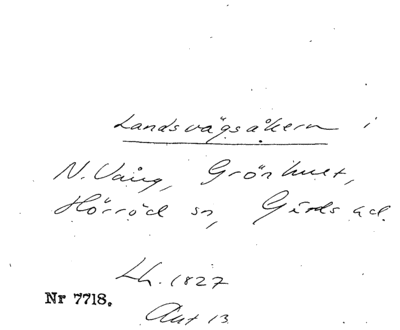 Landsvägsåkern i
N. Vång, Grönhult,
Hörröd sn, Gärds hd.
Lh. 1827
Nr 7718.
Akt 13